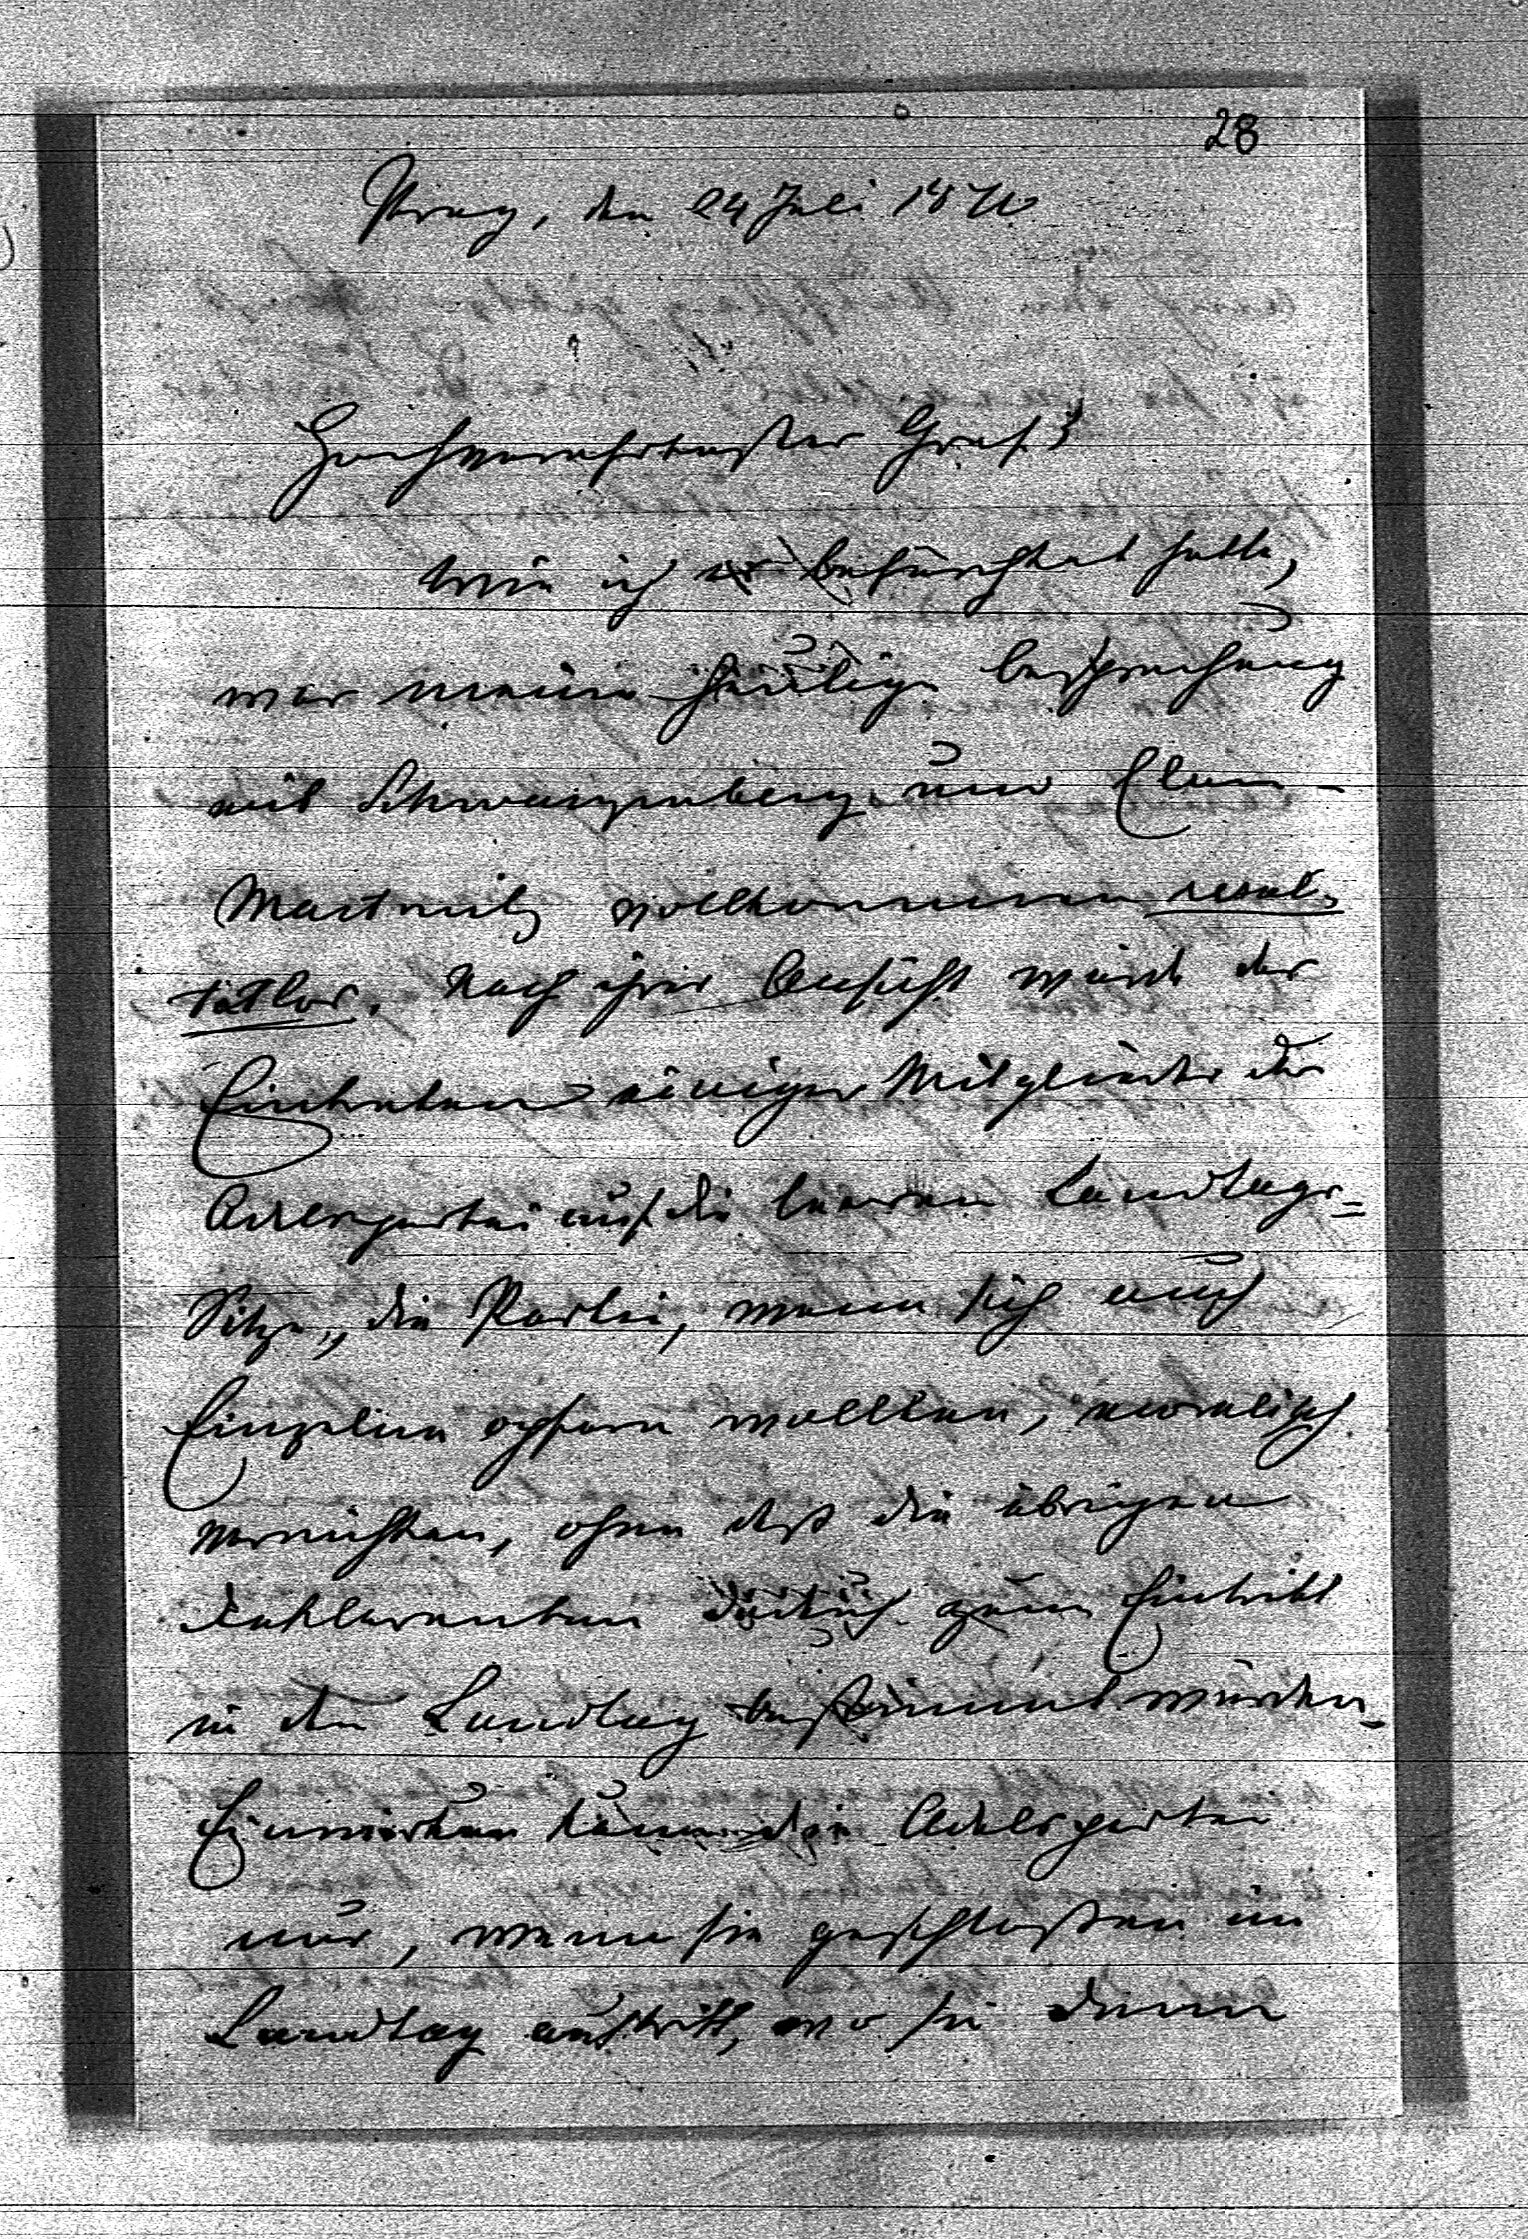 28
Prag, den 24 Juli 1870
Hochverehrtester Graf!
Wie ich befürchtet hatte,
war meine heutige Besprechung
mit Schwarzenberg und Clam-
Martinitz vollkommen resul-
tatlos. Nach ihrer Ansicht würde der
Eintreten einiger Mitglieder der
Adelspartei auf die leeren Landtags-
Sitze, die Partei, wenn sich auch
Einzelne opfern wollten, moralisch
vernichten, ohne daß die übrigen
Deklaranten dadurch zum Eintritt
in den Landtag bestimmt würden.
Einwirken könne die Adelspartei
nur, wenn sie geschlossen im
Landtag auftritt, wo sie dann